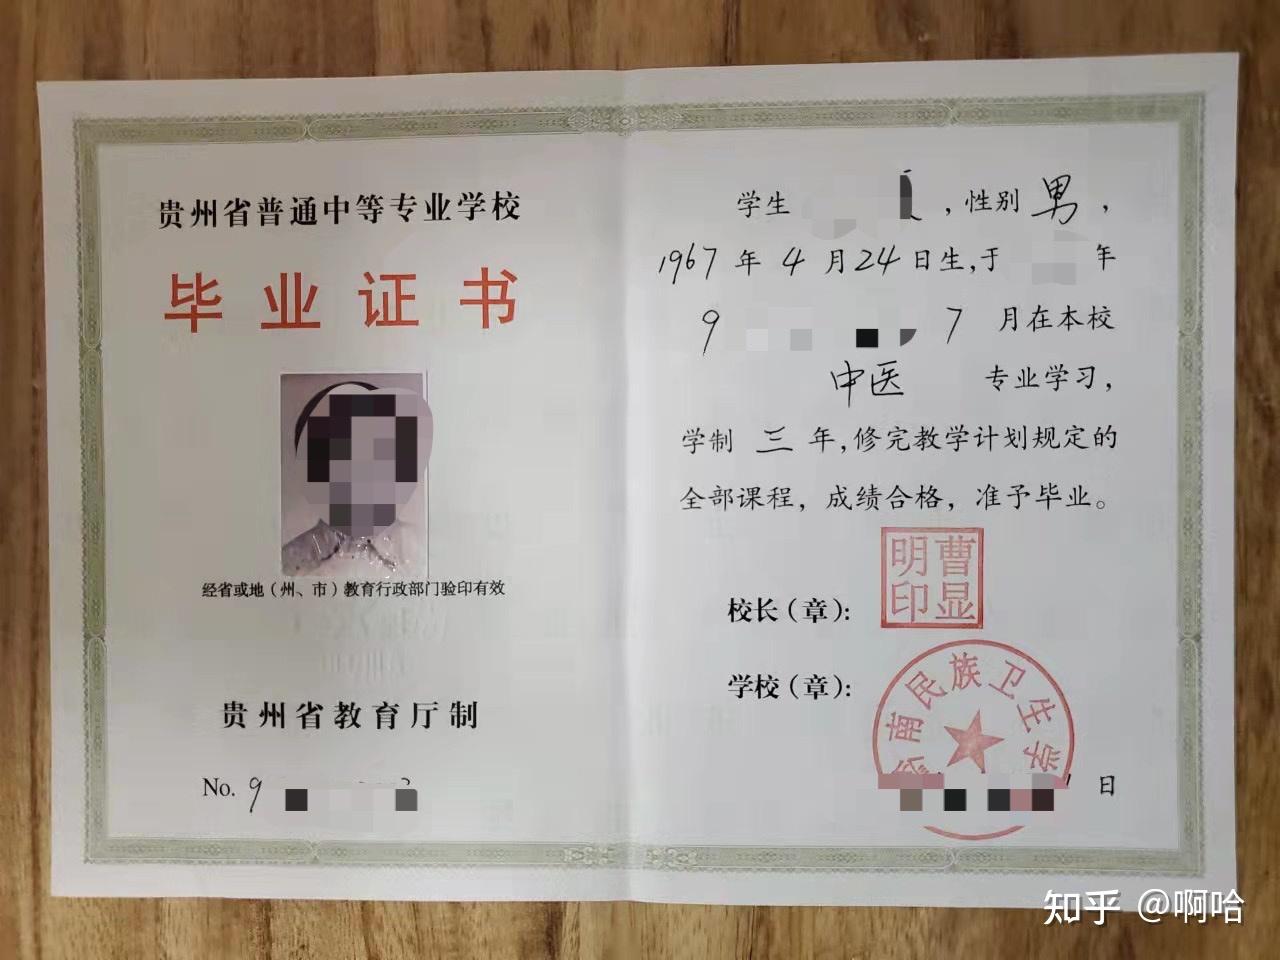 贵州省普通中等专业学校
毕业证书
经省或地（州、市）教育行政部门验印有效
贵州省教育厅制
No. 9
学生 ，性别 男，
1967 年 4 月 24 日生,于 年
9 7 月在本校
中医 专业学习，
学制 三 年,修完教学计划规定的
全部课程，成绩合格，准予毕业。
校长（章）：
曹显明印
学校（章）：
南民族卫生学
日
知乎 @啊哈